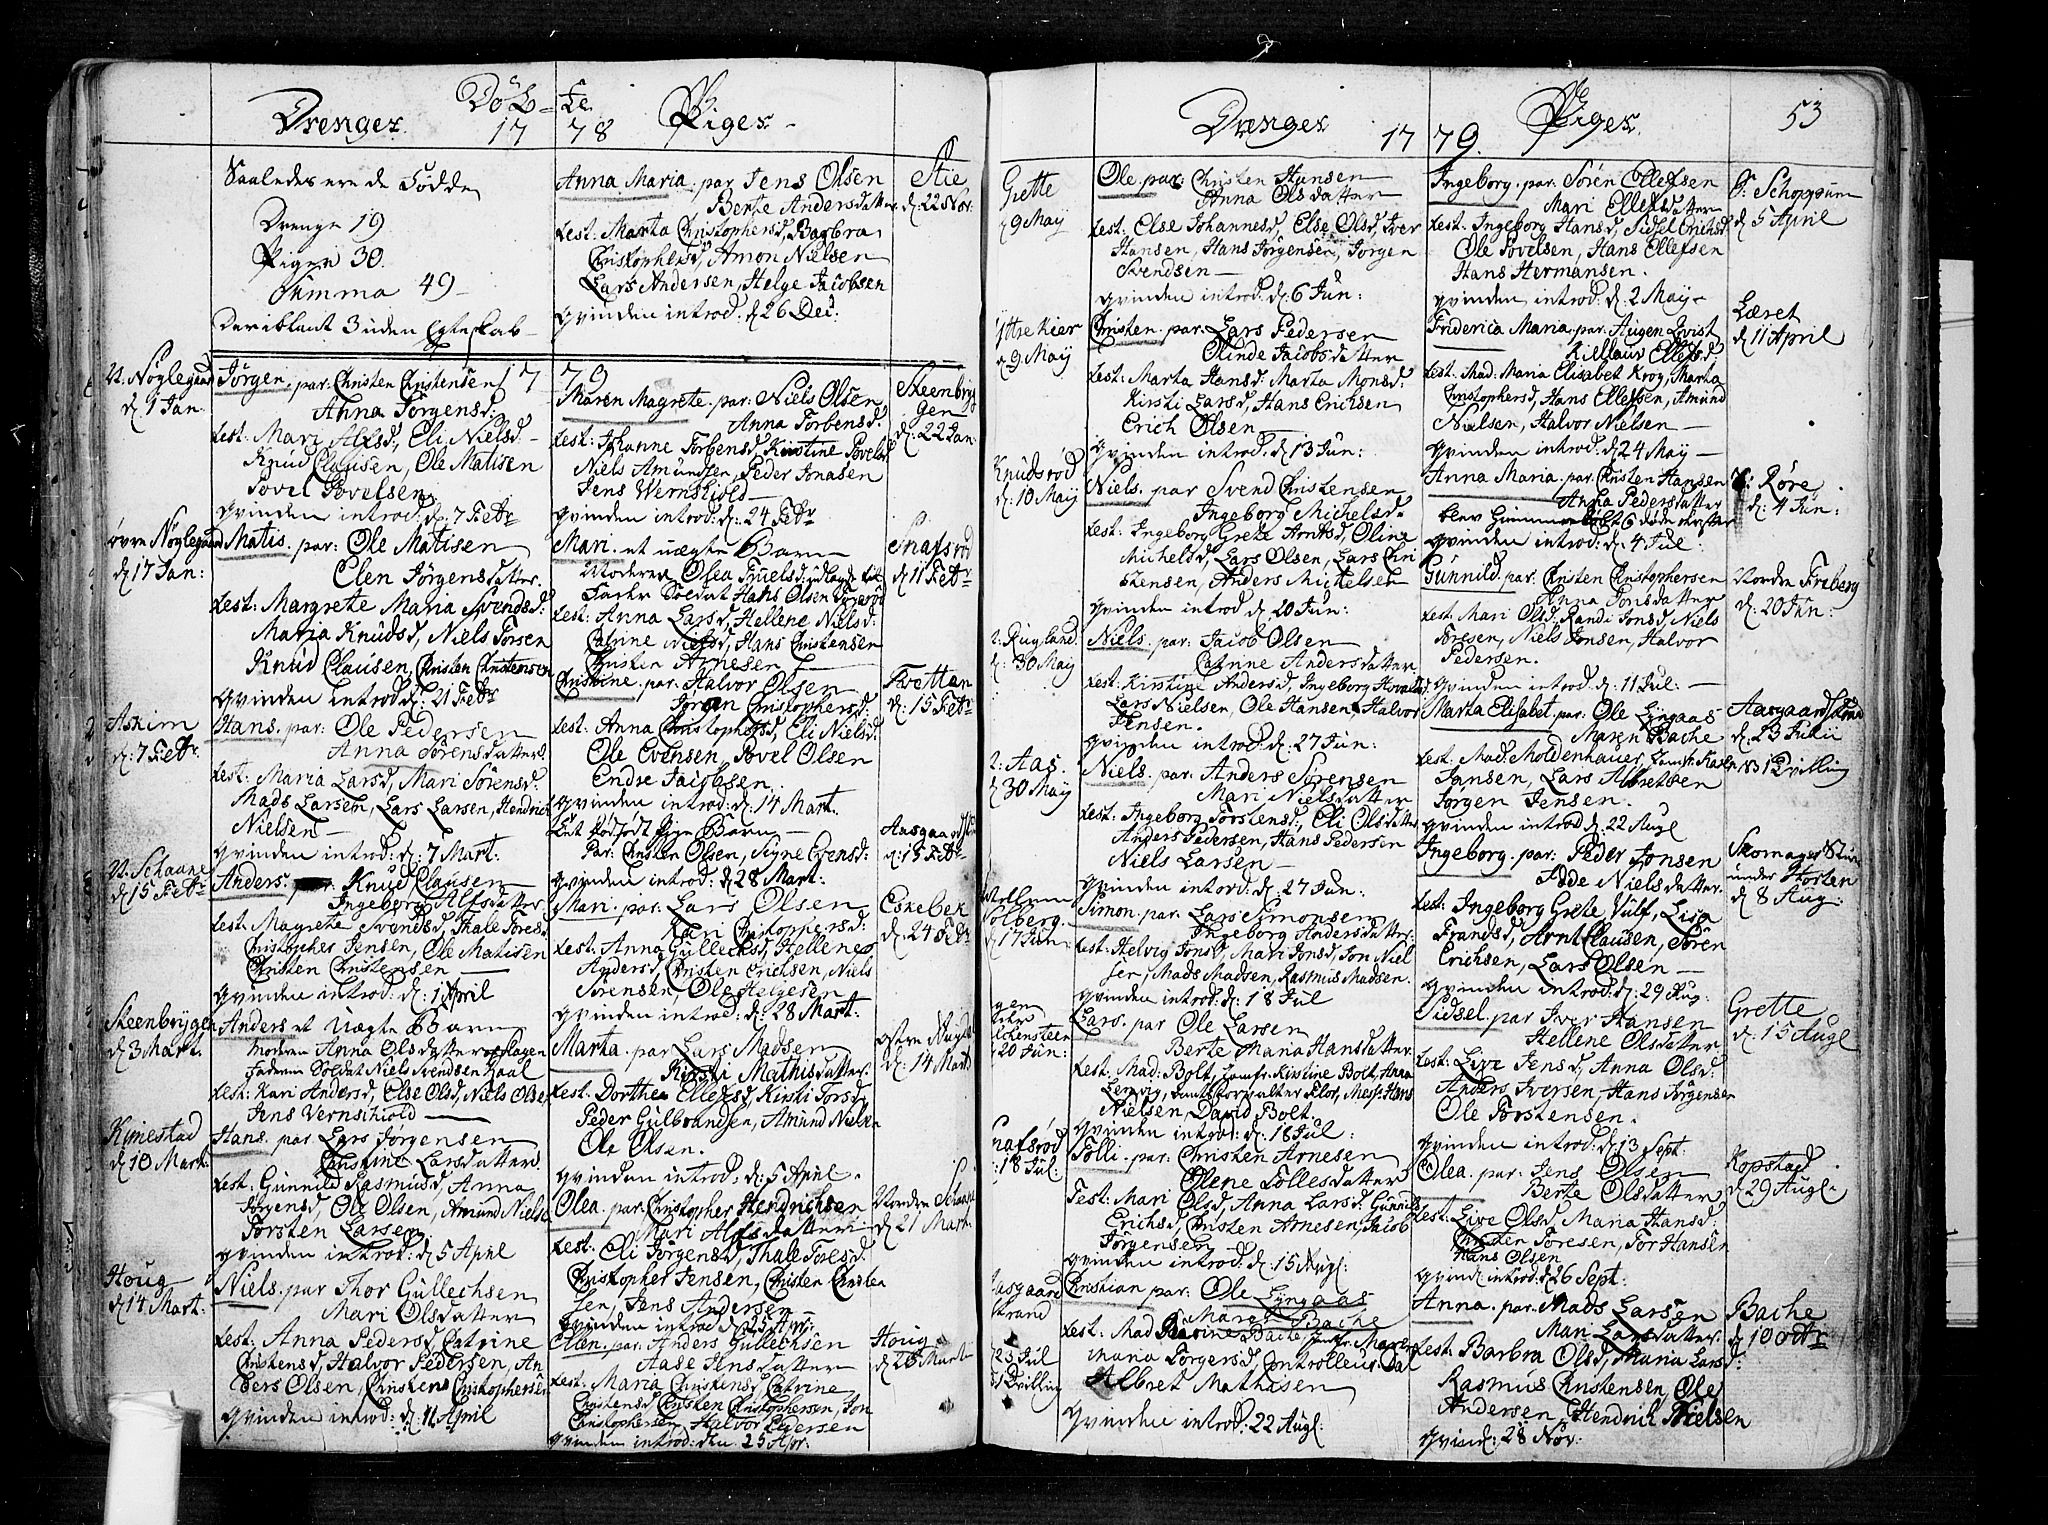 Døb-
te
Drenger. 17 78 Piger.
Saaledes ere de Födde
Drenge 19
Piger 30.
Summa 49
Deriblant 3 uden Egteskab
N. Nöglegaard
d. 1 Jan.
Jörgen. par: Christen Christensen
Anna Jörgensd.
test: Mari Alfsd, Eli Nielsd
Knud Clausen, Ole Matisen
Povel Povelsen
qvinden introd: d: 7 Febr
øvre Nöglegaard
d. 17 Jan:
Matis. par: Ole Matisen
Elen Jörgensdatter.
test: Margrete Maria Svendsd:
Maria Knudsd, Niels Torsen
Knud Clausen, Christen Christensen
qvinden introd: d: 21 Febr
Askim
d: 7 Febr.
Hans. par: Ole Pedersen
Anna Sörensdatter
test: Maria Larsd, Mari Sörensd.
Mads Larsen, Lars Larsen, Hendrich
Nielsen
qvinden introd: d: 7 Mart.
N. Schaane
d. 15 Febr
Anders. Knud Clausen
Ingeborg Alfsdatter
test: Magrete Svendsd, Thale Toresd
Christopher Jensen, Ole Matisen
Christen Christensen
qvinden introd: d: 1 April
Steenbrygen
d. 3 Mart.
Anders et Uægte Barn
Moderen Anna Olsdatter
Faderen Soldat Niels Svendsen
test: Kari Andersd, Else Olsd, Niels Olsen
Jens Vernskiold
Kimestad
d. 10 Mart.
Hans. par Lars Jörgensen
Christine Larsdatter
test: Gunnild Rasmusd, Anna
Jörgensd, Ole Olsen, Amund Nielsen
Torsten Larsen
qvinden introd: d 5 April
Houg
d. 14 Mart.
Niels. par Thor Gullechsen
Mari Olsdatter
test: Anna Pedersd Catrine
Christensd, Halvor Pedersen, An
ders Olsen, Christen Christophersen
qvinden introd: d: 11 April
Anna Maria. par Jens Olsen
Berte Andersdatter
test: Marta Christophersd, Barbra
Christophersd, Amon Nielsen
Lars Andersen, Helge Jacobsen
qvinden introd: d 26 Dec:
Stie
d. 22 Nov.
17 79
Maren Magrete. par: Niels Olsen
Anna Torbensd.
test: Johanne Torbensd, Kirstine Povelsd
Niels Amundsen, Peder Jonasen
Jens Wernskiold
qvinden introd: d: 24 Febr
Steenbryg
gen
d: 22 Jan.
Mari. et uægte Barn
Moderen Olea Truelsd: udlagde til
Fader Soldat Hans Olsen
test: Anna Larsd, Hellene Nielsd:
Catrine Nielsd, Hans Christensen
Christen Arnesen
Snafsröd
d: 11 Febr
Christine. par: Halvor Olsen
Jöran Christophersd.
test: Anna Christophersd, Eli Nielsd.
Ole Evensen, Povel Olsen
Endre Jacobsen.
qvinden introd: d: 14 Mart.
Tvetten
d: 15 Febr
Et dödfödt Pige Barn
Par: Christen Olsen, Signe Evensd:
qvinden introd: d: 28 Mart:
Aasgaard
d: 15 Febr
Mari. par: Lars Olsen
Kari Christophersd:
test: Anna Gullechsd, Hellene
Andersd, Christen Erichsen, Niels
Sörensen, Ole Helgesen
qvinden introd: d: 28 Mart.
Eskebek
d. 24 Febr
Marta. par Lars Madsen
Kirsti Mathisdatter.
test: Dorthea Ellefsd, Kirsti Torsd
Peder Gulbrandsen, Amund Nielsen
Ole Olsen.
qvinden introd: d: 5 April
d: 14 Mart
Olea. par: Christopher Hendrichsen
Mari Alfsdatter
test: Eli Jörgensd, Thale Toresd.
Christopher Jensen, Christen Christen
sen, Jens Andersen
qvinden introd d. 25 Apr:
Nordre Schaane
d. 21 Mart.
Ellen. par: Anders Gullechsen
Aase Jensdatter
test: Maria Christensd, Catrine
Christensd Christen Christophersen, Jon
Christophersen, Halvor Pedersen
qvinden introd: den 25 Apr.
Houg
d 26 Mart
Drenger 17 79. Piger. 53
Grette
9 May
Ole par: Christen Hansen
Anna Olsdatter
test: Else Johannesd, Else Olsd, Iver
Hansen, Hans Jörgensen, Jörgen
Svendsen
qvinden introd: d: 6 Jun:
Yttre Kier
9 May
Christen. par: Lars Pedersen
Olinde Jacobsdatter
test: Marta Hansd: Marta Monsd:
Kirsti Larsd, Hans Erichsen
Erich Olsen
qvinden introd: d 13 Jun:
Knudsröd
d: 10 May
Niels. par Svend Christensen
Ingeborg Michelsd.
test: Ingeborg Grete Arntsd, Oline
Michelsd, Lars Olsen, Lars Chri
stensen, Anders Michelsen
qvinden introd d 20 Jun:
Rugland
d: 30 May
Niels. par: Jacob Olsen
Catrine Andersdatter
test: Kirstine Andersd, Ingeborg
Lars Nielsen, Ole Hansen, Halvor
Jensen.
qvinden introd: d: 27 Jun:
Aas
30 May
Niels. par: Anders Sörensen
Mari Nielsdatter
test: Ingeborg Torstensd, Eli Olsdatter
Anders Pedersen, Hans Pedersen
Niels Larsen
qvinden introd: d: 27 Jun:
Solberg
17 Jun
Simon. par: Lars Simonsen
Ingeborg Andersdatter:
test: Helvig Jonsd, Mari Jonsd, Jon Niel
sen, Mads Madsen, Rasmus Madsen.
qvinden introd: d: 18 Jul
20 Jun:
Lars. par Ole Larsen
Berte Maria Hansdatter
test: Mad: Bolt, Jomfr: Kirstine Bolt, Anna
forvalter Flor, Mess: Hans
Nielsen, David Bolt.
qvinden introd: d: 18 Jul:
Snafsröd
18 Jul:
Tolli. par: Christen Arnesen
Olene Tollesdatter
Test: Mari Olsd, Anna Larsd, Gunnild
Erichsd, Christen Arnesen, Jacob
Jörgensen
qvinden introd: d: 15 Augl:
Aasgaard
strand
23 Jul
Tvilling
Christian par: Ole Lyngaas
Maren Bache
test: Mad Bache, Jomfr: Maren
Maria Torgersd, Controlleur Dal
Albret Mathisen
qvinden introd: 22 Augl:
Ingeborg. par: Sören Ellefsen
Mari Ellefsdatter
test: Ingeborg Hansd, Sidsel Erichsd
Ole Povelsen, Hans Ellefsen
Hans Hermansen.
qvinden introd: d: 2 May
S: Schoppum
d 5 April
Friderica Maria. par: Augen Qvist
Ellefsd
test: Mad: Maria Elisabet Krog, Marta
Christophersd, Hans Ellefsen, Amund
Nielsen, Halvor Nielsen
qvinden introd: d 24 May
Læret
d 11 April
Anna Maria. par: Christen Hansen
Anna Pedersdatter
blev döbt
qvinden introd: d: 4 Jul:
Röre
d: 4 Jun:
Gunnild. par: Christen Christophersen
Anna Jonsdatter
test: Mari Olsd, Randi Jonsd, Niels
Toresen, Niels Jensen, Halvor
Pedersen.
qvinden introd: d: 11 Jul:
Nordre Freberg
d: 20 Jun:
Marta Elisabet. par: Ole Lyngaas
Maren Bache
test: Mad. Moldenhauer, Jomfr: Karen
Jansen, Lars Albretsen
Jörgen Jensen.
qvinden introd: 22 Augl
Aasgaardstrand
d. 23 Julii
Tvilling
Ingeborg. par: Peder Jonsen
Edde Nielsdatter.
test: Ingeborg Grete Vulf, Lisa
Frandsd, Arnt Clausen, Sören
Erichsen, Lars Olsen
qvinden introd: d: 29 Aug:
Skomager Stu
under Horten
d 8 Aug:
Sidsel. par Iver Hansen
Hellene Olsdatter
test: Live Jensd, Anna Olsd:
Anders Iversen, Hans Jörgensen
Ole Torstensen.
qvinden introd: d 13 Sept:
Grette
d. 15 Augl
Olea. par: Jens Olsen
Berte Olsdatter
test: Live Olsd, Maria Hansd:
Christen Toresen, Tor Hansen
Hans Olsen
qvind. introd: d 26 Sept:
Kopstad
d 29 Augl:
Anna. par: Mads Larsen
Mari Larsdatter.
test: Barbra Olsd, Maria Larsd:
Rasmus Christensen, Ole
Andersen, Hendrich Nielsen
qvind: 28 Nov:
Bache
d 10 Octr